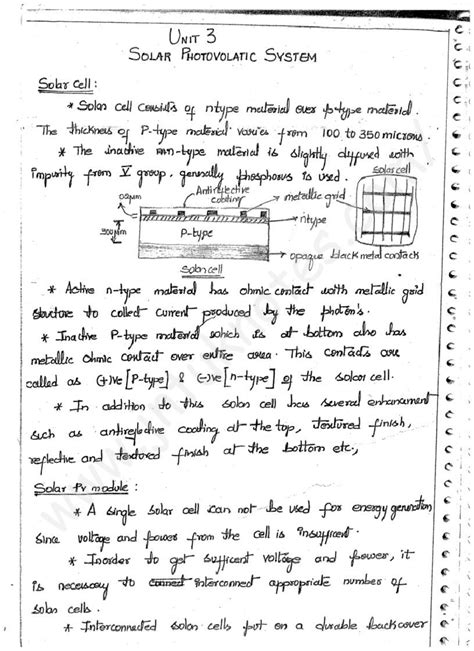 UNIT 3
SOLAR PHOTOVOLATIC SYSTEM
Solar cell :
* Solar cell consists of ntype material over p-type material.
The thicknes of P-type material varies from 100 to 350 microns.
* The inactive n-type material is slightly diffused with
impurity from V group, generally phosphorus is used.
solar cell
Antireflective
coating
metallic grid
0.2μm
ntype
300μm
P-type
opaque back metal contacts
solar cell
* Active n-type material has ohmic contact with metallic grid
structure to collect current produced by the photon's.
* Inactive P-type material which is at bottom also has
metallic Ohmic contact over entire area. This contacts are
called as (+)ve [P-type] & (-)ve [n-type] of the solar cell.
* In addition to this solar cell has several enhancement
such as antireflective coating at the top, textured finish,
reflective and textured finish at the bottom etc.,
Solar Pv module :
* A single solar cell can not be used for energy generation
since voltage and power from the cell is insufficent.
* Inorder to get sufficent voltage and power, it
is necessary to connect interconnected appropriate number of
solar cells.
* Interconnected solar cells put on a durable back cover